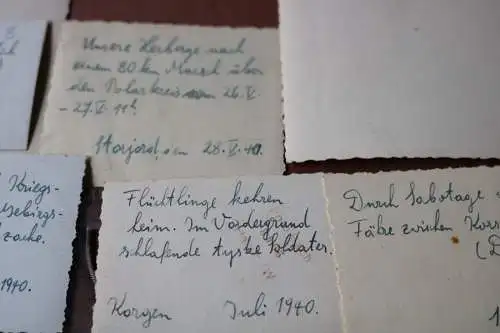 Unsere Herberge nach
einem 80 km Marsch über
den Polarkreis vom 26.V.
- 27.V. 11h.
Storjord, den 28.V.40.
Kriegs-
Gebirgs-
zacke.
1940.
Flüchtlinge kehren
heim. Im Vordergrund
schlafende tyske Soldater.
Korgen Juli 1940.
Durch Sabotage
Fähre zwischen Korr
(D
1